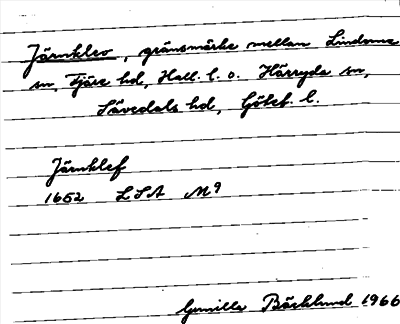 Järnklev, gränsmärke mellan Lindome
sn, Fjäre hd, Hall. l. o. Härryda sn,
Sävedals hd, Götef. l.
Järnklef
1652 LSA M9
Gunilla Bäcklund 1966